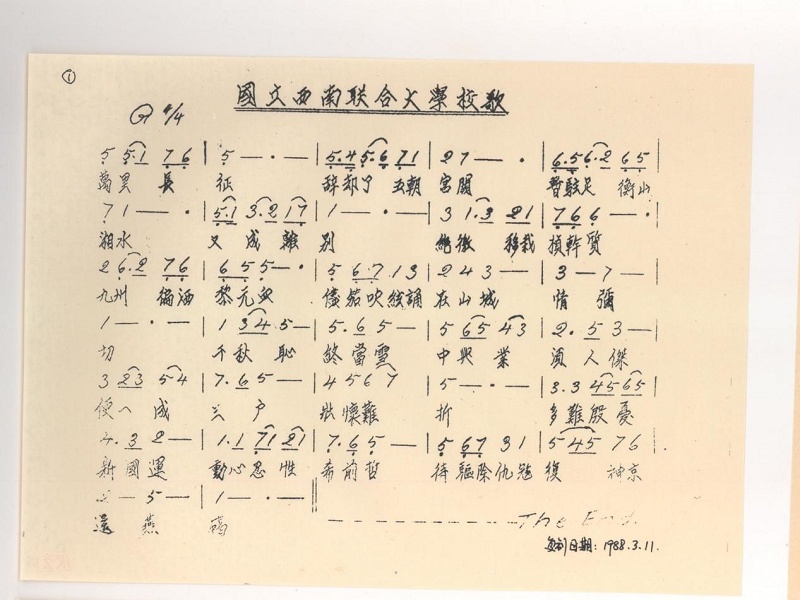 ①
國立西南联合大學校歌
G 4/4
5 5·1 76 | 5 — · — | 5·4 5·6 71 | 2 7 — · | 6·5 6·2 65 |
萬里 長 征 辞却了 五朝 宮闕 暫駐足 衡山
7 1 — · | 5·1 3·2 17 | 1 — · — | 3 1·3 21 | 7 6 6 — · |
湘水 又成離 別 絶徼 移栽 楨幹質
2 6·2 76 | 6 5 5 — · | 5 6·7 1 3 | 2 4 3 — | 3 — 7 — |
九州 徧洒 黎元血 儘笳吹絃誦 在山城 情 彌
1 — · — | 1 34 5 — | 5·6 5 — | 5 65 43 | 2· 5 3 — |
切 千秋 恥 終當雪 中興 業 須人傑
3 23 54 | 7·6 5 — | 4 5 6 7 | 5 — · — | 3·3 45 65 |
便一成 三戶 壯懷難 折 多難殷憂
4·3 2 — | 1·1 71 21 | 7·6 5 — | 5 67 31 | 5 45 76 |
新國運 動心忍性 希前哲 待驅除仇冦 復 神京
— 5 — | 1 — · — ||
還 燕 碣
The End.
複制日期：1988.3.11.